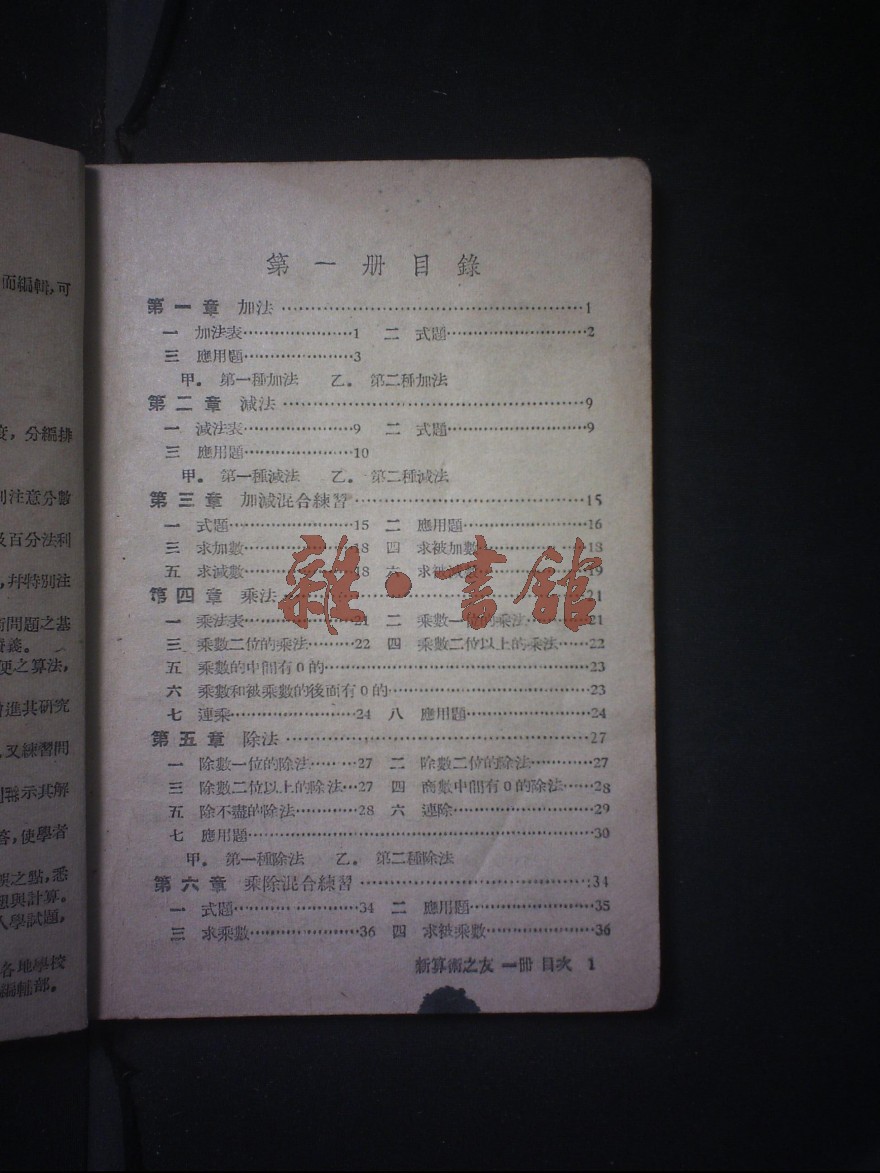 第一册目錄
第一章 加法……1
一 加法表……1 二 式題……2
三 應用題……3
甲. 第一種加法 乙. 第二種加法
第二章 減法……9
一 減法表……9 二 式題……9
三 應用題……10
甲. 第一種減法 乙. 第二種減法
第三章 加減混合練習……15
一 式題……15 二 應用題……16
三 求加數……18 四 求被加數……18
五 求減數……18 六 求被減數……19
第四章 乘法……21
一 乘法表……21 二 乘數一位的乘法……21
三 乘數二位的乘法……22 四 乘數二位以上的乘法……22
五 乘數的中間有0的……23
六 乘數和被乘數的後面有0的……23
七 連乘……24 八 應用題……24
第五章 除法……27
一 除數一位的除法……27 二 除數二位的除法……27
三 除數二位以上的除法…27 四 商數中間有0的除法……28
五 除不盡的除法……28 六 連除……29
七 應用題……30
甲. 第一種除法 乙. 第二種除法
第六章 乘除混合練習……34
一 式題……34 二 應用題……35
三 求乘數……36 四 求被乘數……36
新算術之友 一冊 目次 1
雜·書館
而編輯,可
分編排
注意分數
百分法利
特別法
問題之基
義。
便之算法,
進其研究
又練習問
示其解
使學者
之點,悉
與計算。
入學試題,
各地學校
編輯部。